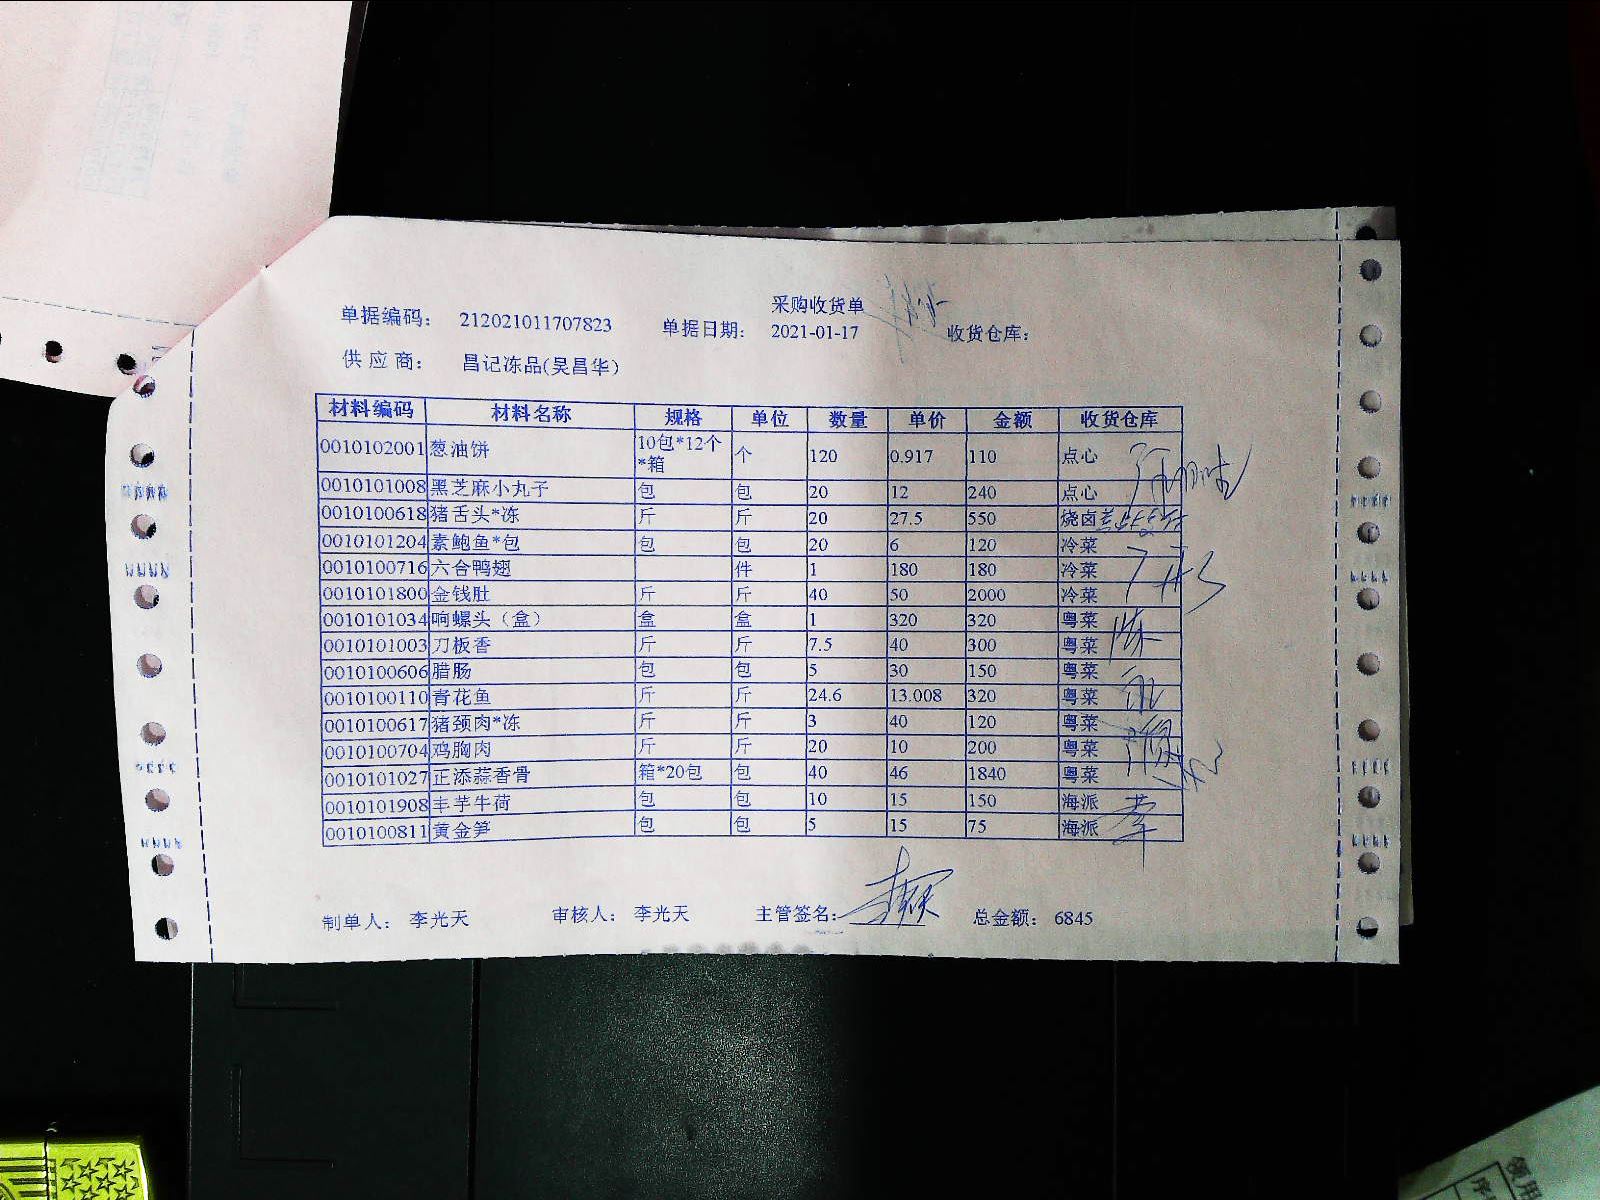 采购收货单
单据编码： 212021011707823 单据日期： 2021-01-17 收货仓库：
供 应 商： 昌记冻品(吴昌华）
材料编码 材料名称 规格 单位 数量 单价 金额 收货仓库
0010102001 葱油饼 10包*12个*箱 个 120 0.917 110 点心
0010101008 黑芝麻小丸子 包 包 20 12 240 点心
0010100618 猪舌头*冻 斤 斤 20 27.5 550 烧卤
0010101204 素鲍鱼*包 包 包 20 6 120 冷菜
0010100716 六合鸭翅 件 1 180 180 冷菜
0010101800 金钱肚 斤 斤 40 50 2000 冷菜
0010101034 响螺头（盒） 盒 盒 1 320 320 粤菜
0010101003 刀板香 斤 斤 7.5 40 300 粤菜
0010100606 腊肠 包 包 5 30 150 粤菜
0010100110 青花鱼 斤 斤 24.6 13.008 320 粤菜
0010100617 猪颈肉*冻 斤 斤 3 40 120 粤菜
0010100704 鸡胸肉 斤 斤 20 10 200 粤菜
0010101027 正添蒜香骨 箱*20包 包 40 46 1840 粤菜
0010101908 丰芋牛荷 包 包 10 15 150 海派
0010100811 黄金笋 包 包 5 15 75 海派
制单人： 李光天 审核人： 李光天 主管签名： 总金额： 6845